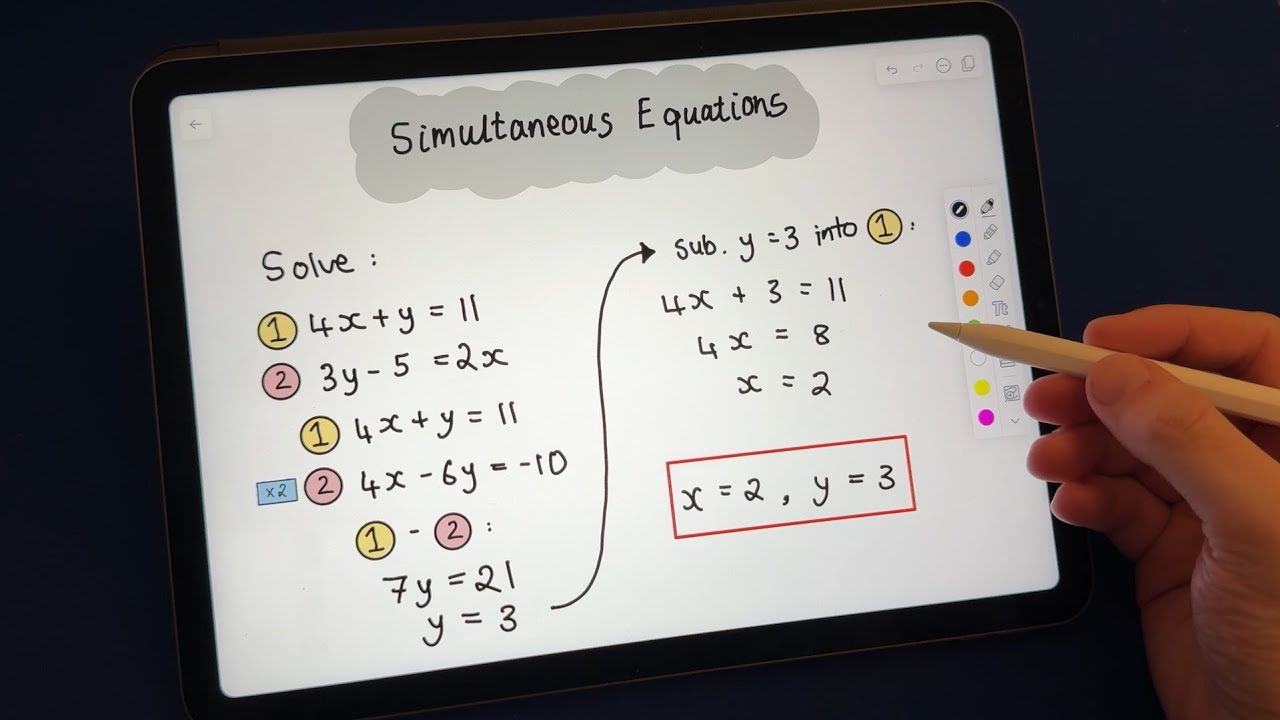 Simultaneous Equations
Solve :
1 4x + y = 11
2 3y - 5 = 2x
1 4x + y = 11
x2 2 4x - 6y = -10
1 - 2 :
7y = 21
y = 3
sub. y = 3 into 1 :
4x + 3 = 11
4x = 8
x = 2
x = 2 , y = 3
Tt